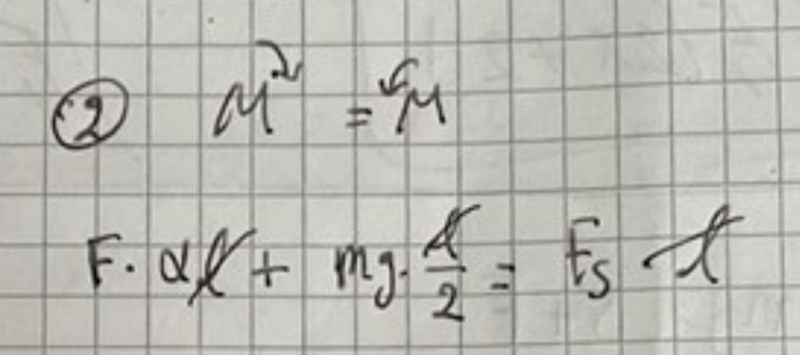 ② M↷ = ↶M
F · αl + mg · l/2 = Fs · l